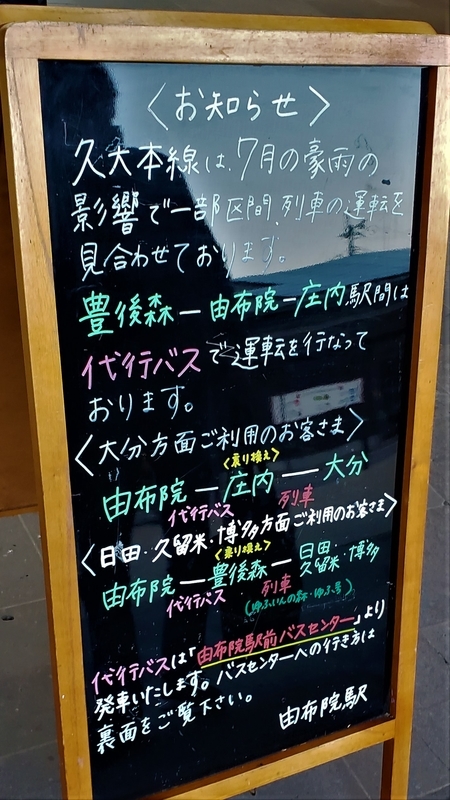 〈お知らせ〉
久大本線は、7月の豪雨の
影響で一部区間、列車の運転を
見合わせております。
豊後森ー由布院ー庄内駅間は
代行バスで運転を行なって
おります。
〈大分方面ご利用のお客さま〉
〈乗り換え〉
由布院ー庄内ー大分
代行バス 列車
〈日田・久留米・博多方面ご利用のお客さま〉
〈乗り換え〉
由布院ー豊後森ー日田・久留米・博多
代行バス 列車
(ゆふいんの森・ゆふ号)
代行バスは「由布院駅前バスセンター」より
発車いたします。バスセンターへの行き方は
裏面をご覧下さい。
由布院駅